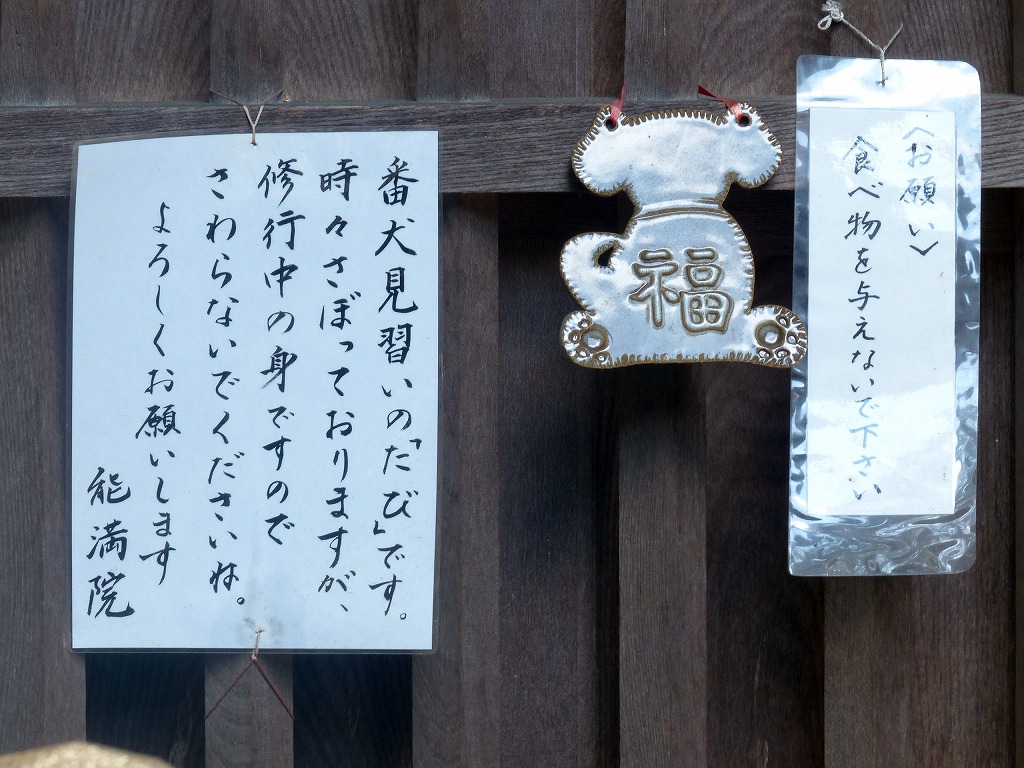 番犬見習いの「たび」です。
時々さぼっておりますが、
修行中の身ですので
さわらないでくださいね。
よろしくお願いします
能満院
福
〈お願い〉
食べ物を与えないで下さい